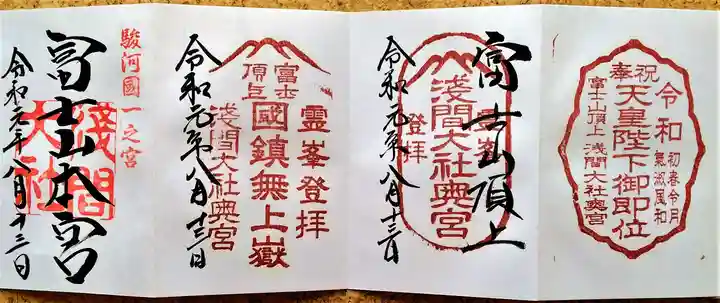 奉祝
令和
初春令月
氣淑風和
天皇陛下御即位
富士山頂上 淺間大社奥宮
富士山頂上
霊峯
登拝
淺間大社奥宮
令和元年八月十三日
富士
頂上
霊峯登拝
國鎮無上嶽
淺間大社奥宮
令和元年八月十三日
駿河國一之宮
富士山本宮
淺間
大社
令和元年八月十三日